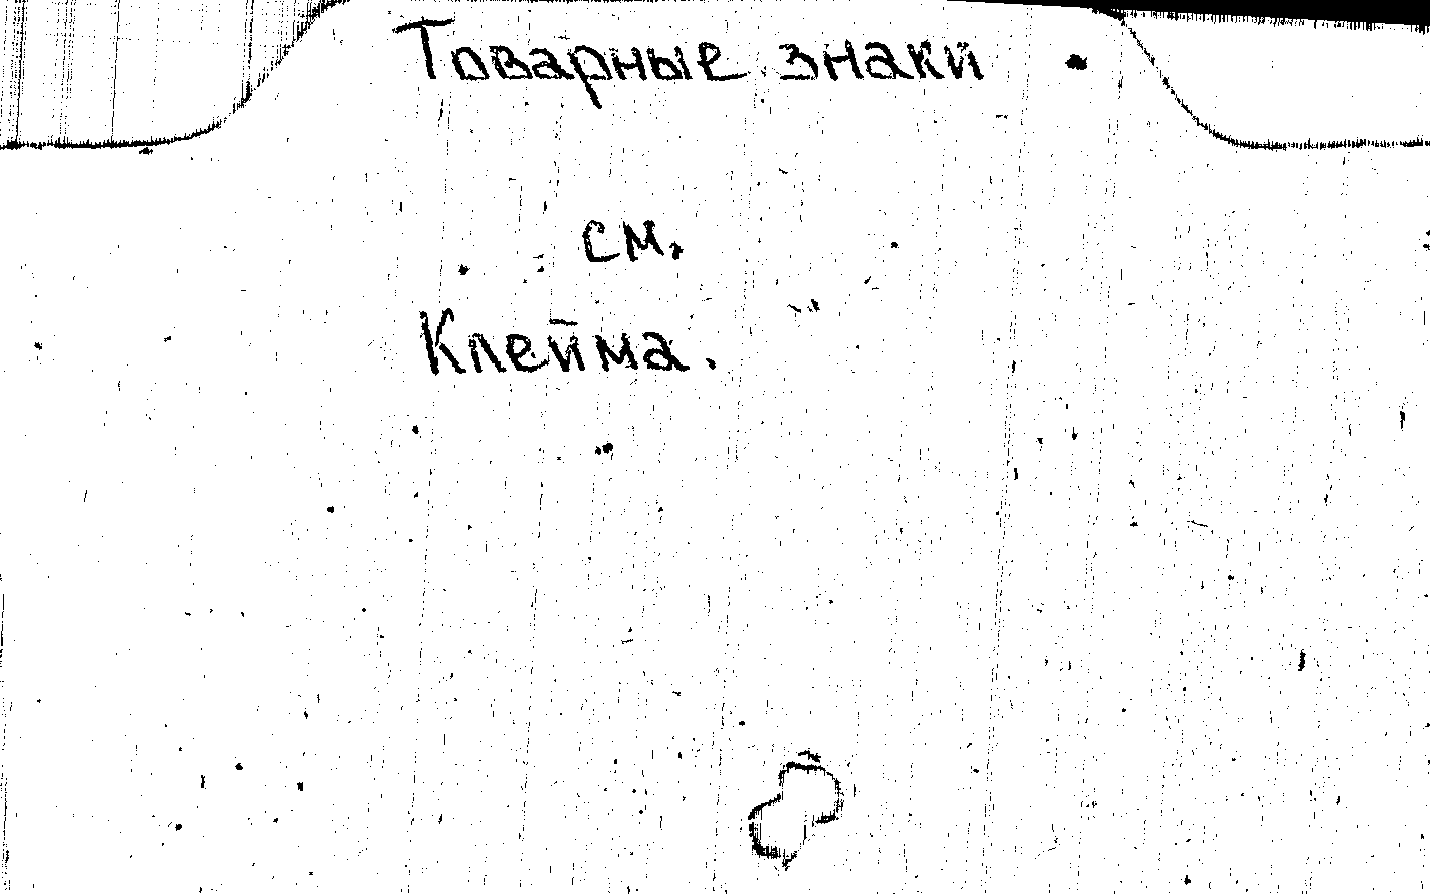 Товарные знаки
см.
Клейма.